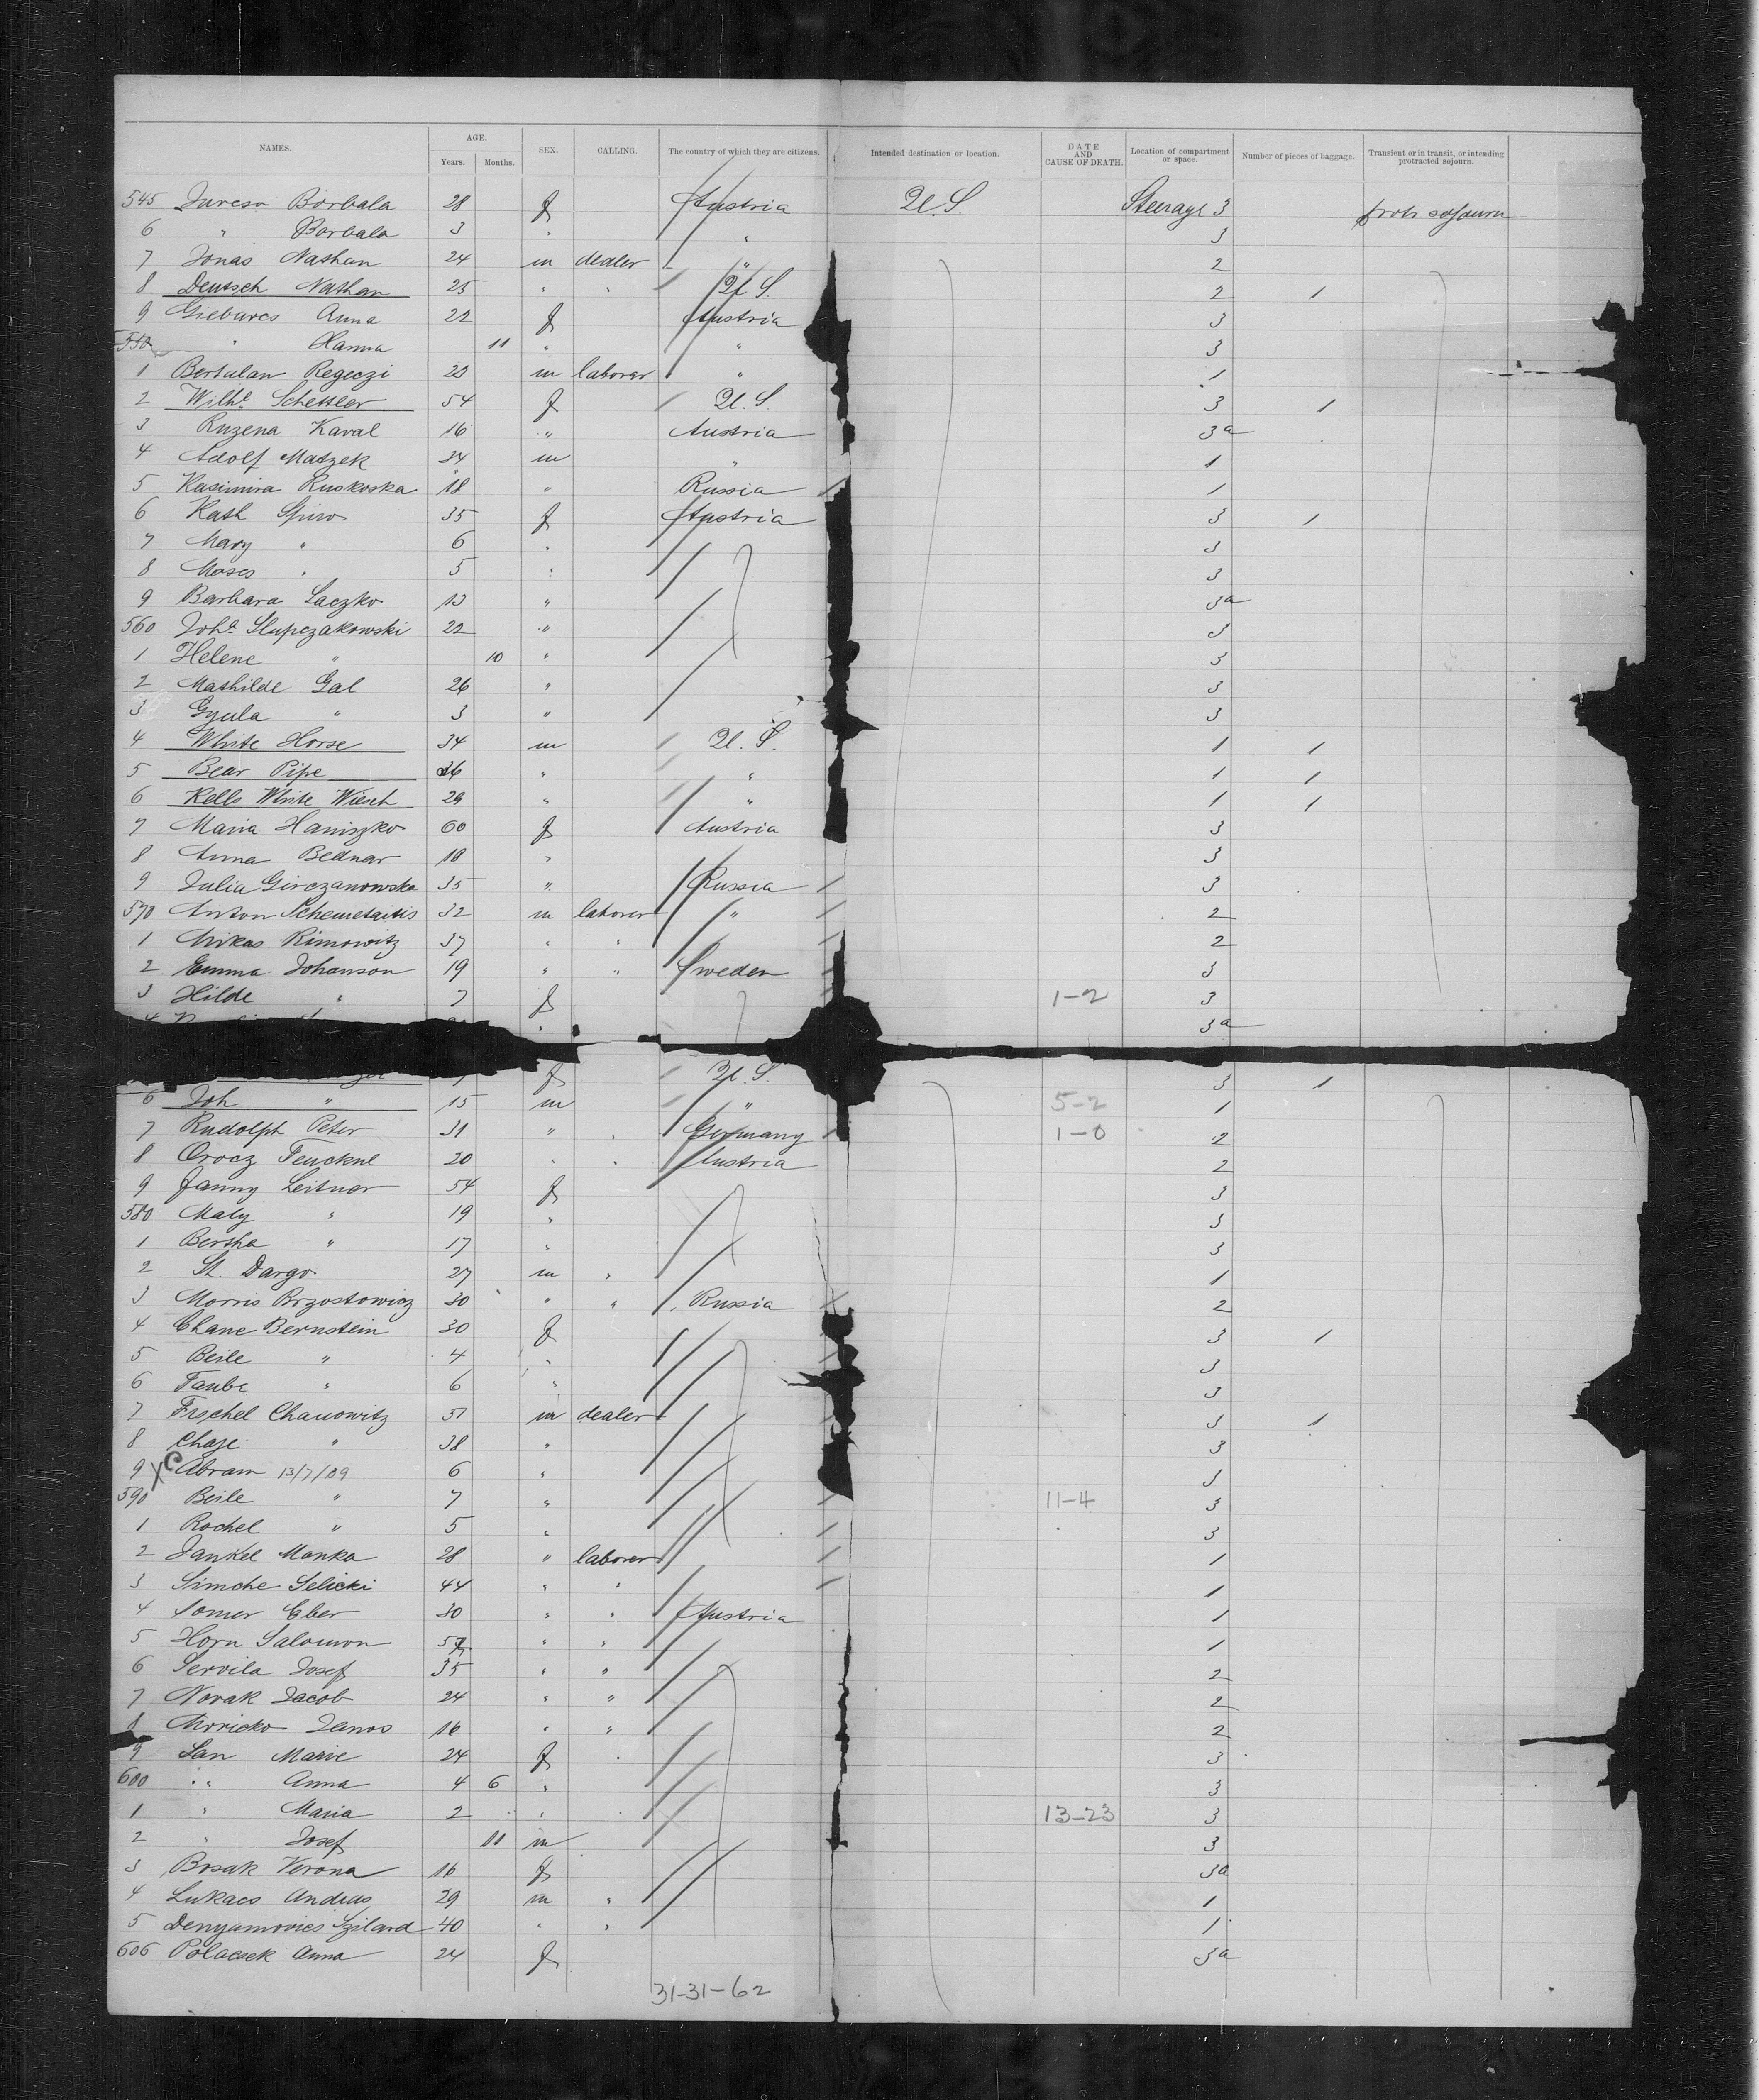 NAMES. AGE. SEX. CALLING. The country of which they are citizens. Intended destination or location. DATE AND CAUSE OF DEATH. Location of compartment or space. Number of pieces of baggage. Transient or in transit, or intending protracted sojourn.
Years. Months.
545 Borbala 28 f Austria U.S. Steerage 3 protr sojourn
6 " Borbala 3 " " 3
7 Jonas Nathan 24 m dealer " 2
8 Deutsch Nathan 25 " " U.S. 2 1
9 Anna 22 f Austria 3
550 " Hanna 11 " " 3
1 Bertalan Regeczi 23 m laborer " 1
2 Wilhe Schettler 54 f U.S. 3 1
3 Ruzena Kaval 16 " Austria 3a
4 Adolf Matzek 34 m " 1
5 Kasimira Ruskoska 18 " Russia 1
6 Kath Spiro 35 f Austria 3 1
7 Mary " 6 " 3
8 Moses " 5 " 3
9 Barbara Laczko 13 " 3a
560 Joha Slupczakowski 22 " 3
1 Helene " 10 " 3
2 Mathilde Gal 26 " 3
3 Gyula " 3 " 3
4 White Horse 34 m U.S. 1 1
5 Bear Pipe 36 " " 1 1
6 Kells White 29 " " 1 1
7 Maria Haniszko 60 f Austria 3
8 Anna Bednar 18 " 3
9 Julia Girczanowska 35 " Russia 3
570 Anton Schemetaitis 32 m laborer " 2
1 Mikas Rimowitz 37 " " 2
2 Emma Johanson 19 " " Sweden 3
3 Hilde " 7 f 1-2 3
" 3a
f U.S. 3 1
6 Joh " 15 m " 5-2 1
7 Rudolph Peter 31 " " Germany 1-0 2
8 Orocz 20 " " Austria 2
9 Fanny Leitner 54 f 3
580 Maly " 19 " 3
1 Bertha " 17 " 3
2 St. Dargo 27 m " 1
3 Morris Brzostowicz 30 " " Russia 2
4 Chane Bernstein 30 f 3 1
5 Beile " 4 " 3
6 Taube " 6 " 3
7 Fischel Chanowitz m dealer 3 1
8 Chaje " 38 " 3
9 XC Abram 13/7/09 6 " 3
590 Beile " 7 " 11-4 3
1 Rochel " 5 " 3
2 Jankel Manka 28 " laborer 1
3 Simche Selicki 44 " " 1
4 Somer Eber 30 " " Austria 1
5 Horn Salomon " " 1
6 Servila Josef 35 " " 2
7 Novak Jacob 24 " " 2
8 Moricko Janos 16 " " 2
9 San Marie 24 f " 3
600 " Anna 4 6 " 3
1 " Maria 2 " 13-23 3
2 " Josef 11 m 3
3 Bosak Verona 16 f 3a
4 Lukacs Andras 29 m " 1
5 Szilard 40 " " 1
606 Polacsek Anna 24 f 3a
31-31-62